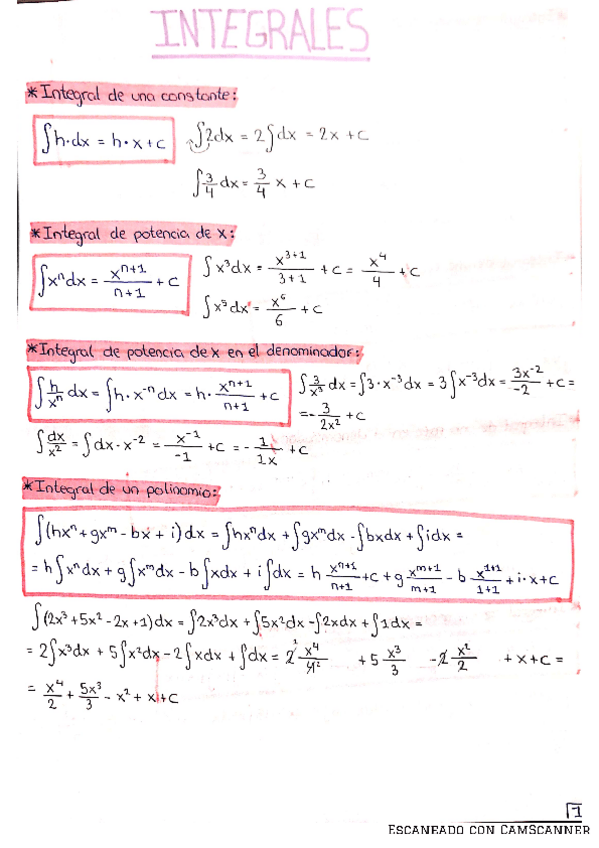 INTEGRALES
* Integral de una constante:
∫h·dx = h·x+c ∫2dx = 2∫dx = 2x +c
∫3/4 dx = 3/4 x +c
* Integral de potencia de x:
∫xⁿdx = xⁿ⁺¹/n+1 + c ∫x³dx = x³⁺¹/3+1 + c = x⁴/4 + c
∫x⁵dx = x⁶/6 + c
* Integral de potencia de x en el denominador:
∫h/xⁿ dx = ∫h·x⁻ⁿdx = h· xⁿ⁺¹/n+1 + c ∫3/x³ dx = ∫3·x⁻³dx = 3∫x⁻³dx = 3x⁻²/-2 + c =
= - 3/2x² + c
∫dx/x² = ∫dx·x⁻² = x⁻¹/-1 + c = - 1/1x + c
* Integral de un polinomio:
∫(hxⁿ + gxᵐ - bx + i)dx = ∫hxⁿdx + ∫gxᵐdx - ∫bxdx + ∫idx =
= h∫xⁿdx + g∫xᵐdx - b∫xdx + i∫dx = h xⁿ⁺¹/n+1 + c + g xᵐ⁺¹/m+1 - b x¹⁺¹/1+1 + i·x+c
∫(2x³ + 5x² - 2x + 1)dx = ∫2x³dx + ∫5x²dx - ∫2xdx + ∫1dx =
= 2∫x³dx + 5∫x²dx - 2∫xdx + ∫dx = 2¹ x⁴/4₂ + 5 x³/3 - 2 x²/2 + x + c =
= x⁴/2 + 5x³/3 - x² + x + c
1
ESCANEADO CON CAMSCANNER